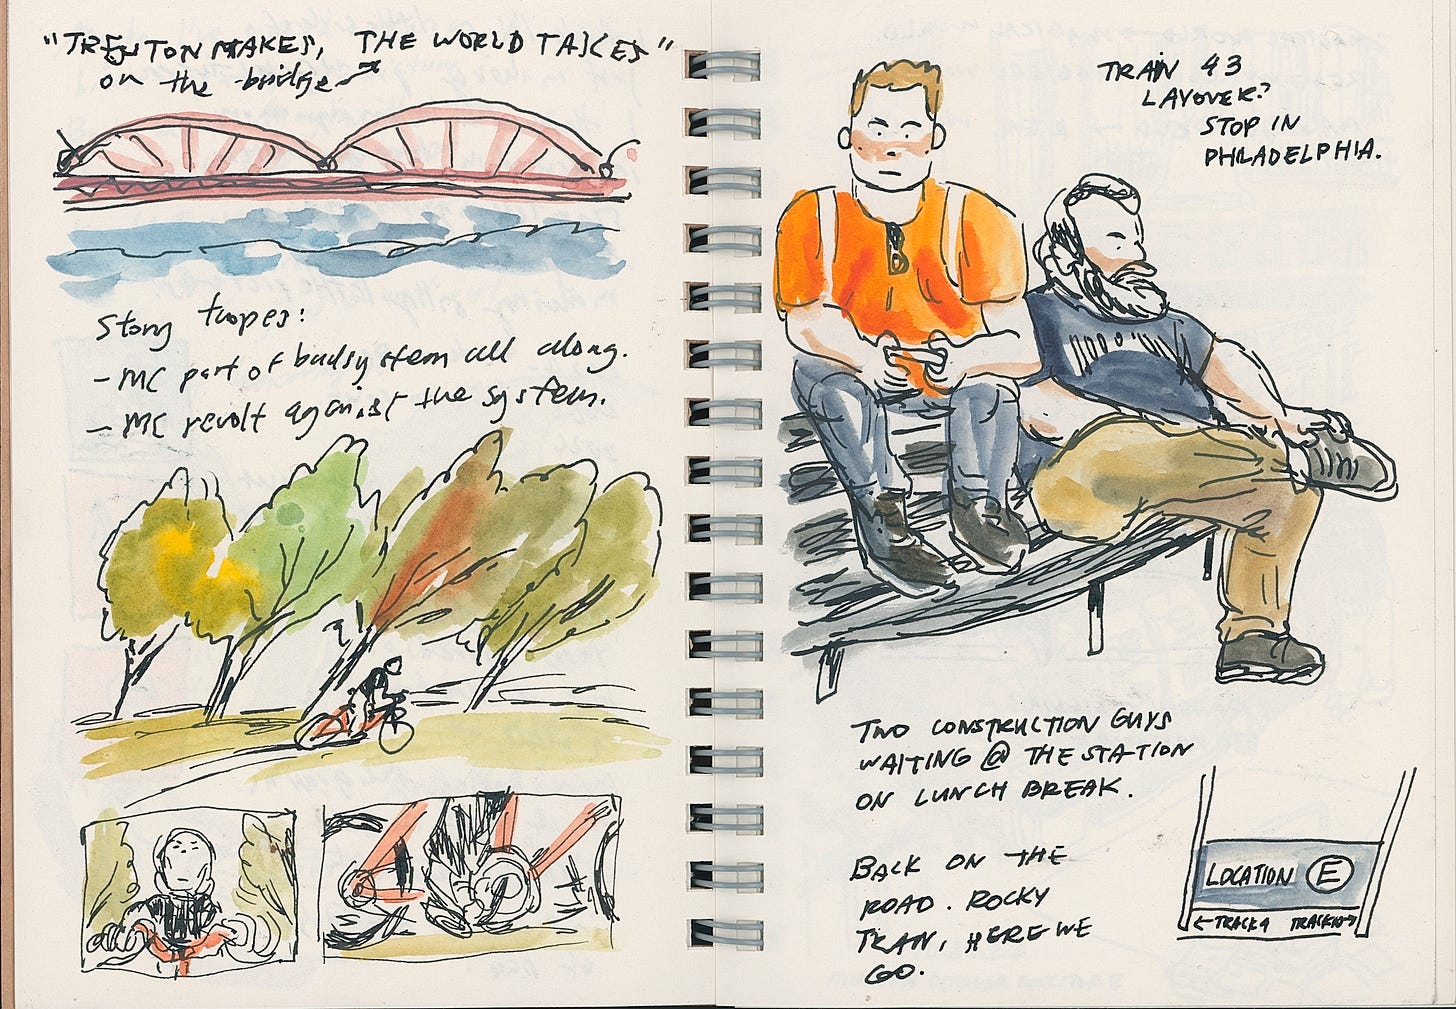 "TRENTON MAKES, THE WORLD TAKES"
on the bridge
Story tropes:
- MC part of bad system all along.
- MC revolt against the system.
TRAIN 43
LAYOVER?
STOP IN
PHILADELPHIA.
TWO CONSTRUCTION GUYS
WAITING @ THE STATION
ON LUNCH BREAK.
BACK ON THE
ROAD. ROCKY
TRAN, HERE WE
GO.
LOCATION E
←TRACK 9 TRACK 10→